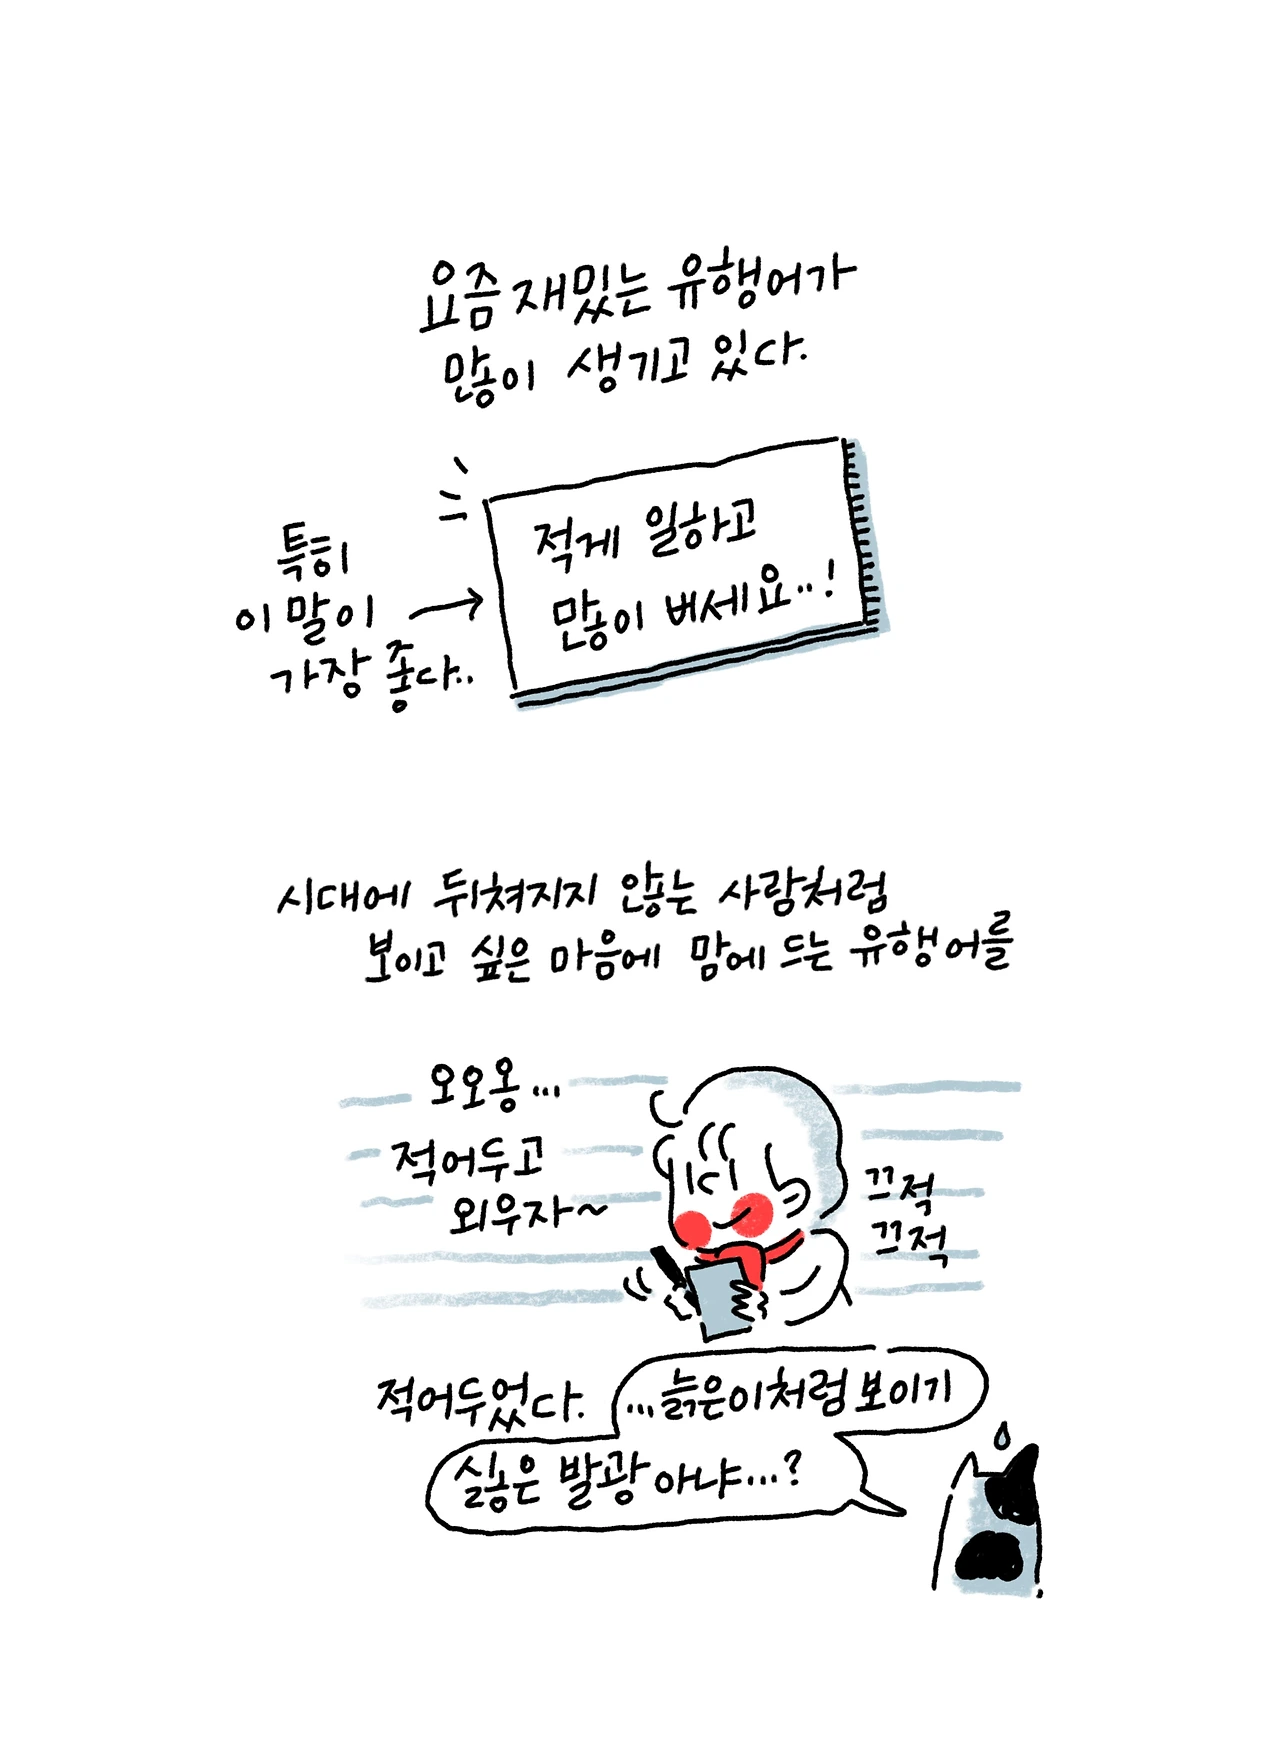 요즘 재밌는 유행어가
많이 생기고 있다.
특히
이 말이
가장 좋다..
적게 일하고
많이 버세요..!
시대에 뒤쳐지지 않는 사람처럼
보이고 싶은 마음에 맘에 드는 유행어를
오오옹...
적어두고
외우자~
끄적
끄적
적어두었다.
...늙은이처럼 보이기
싫은 발광 아냐...?